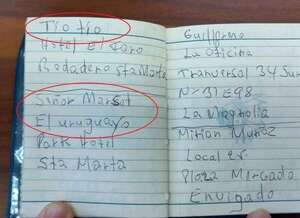 Tío tío
Hotel El Faro
Rodadero Sta Marta
Siñor Marsit
El uruguayo
Park Hotel
Sta Marta
Guillermo
La Oficina
Tranversal 34 Sur
Nº 31E98
La Magnolia
Mirian Muñoz
Local
Plaza Mercado
Envigado